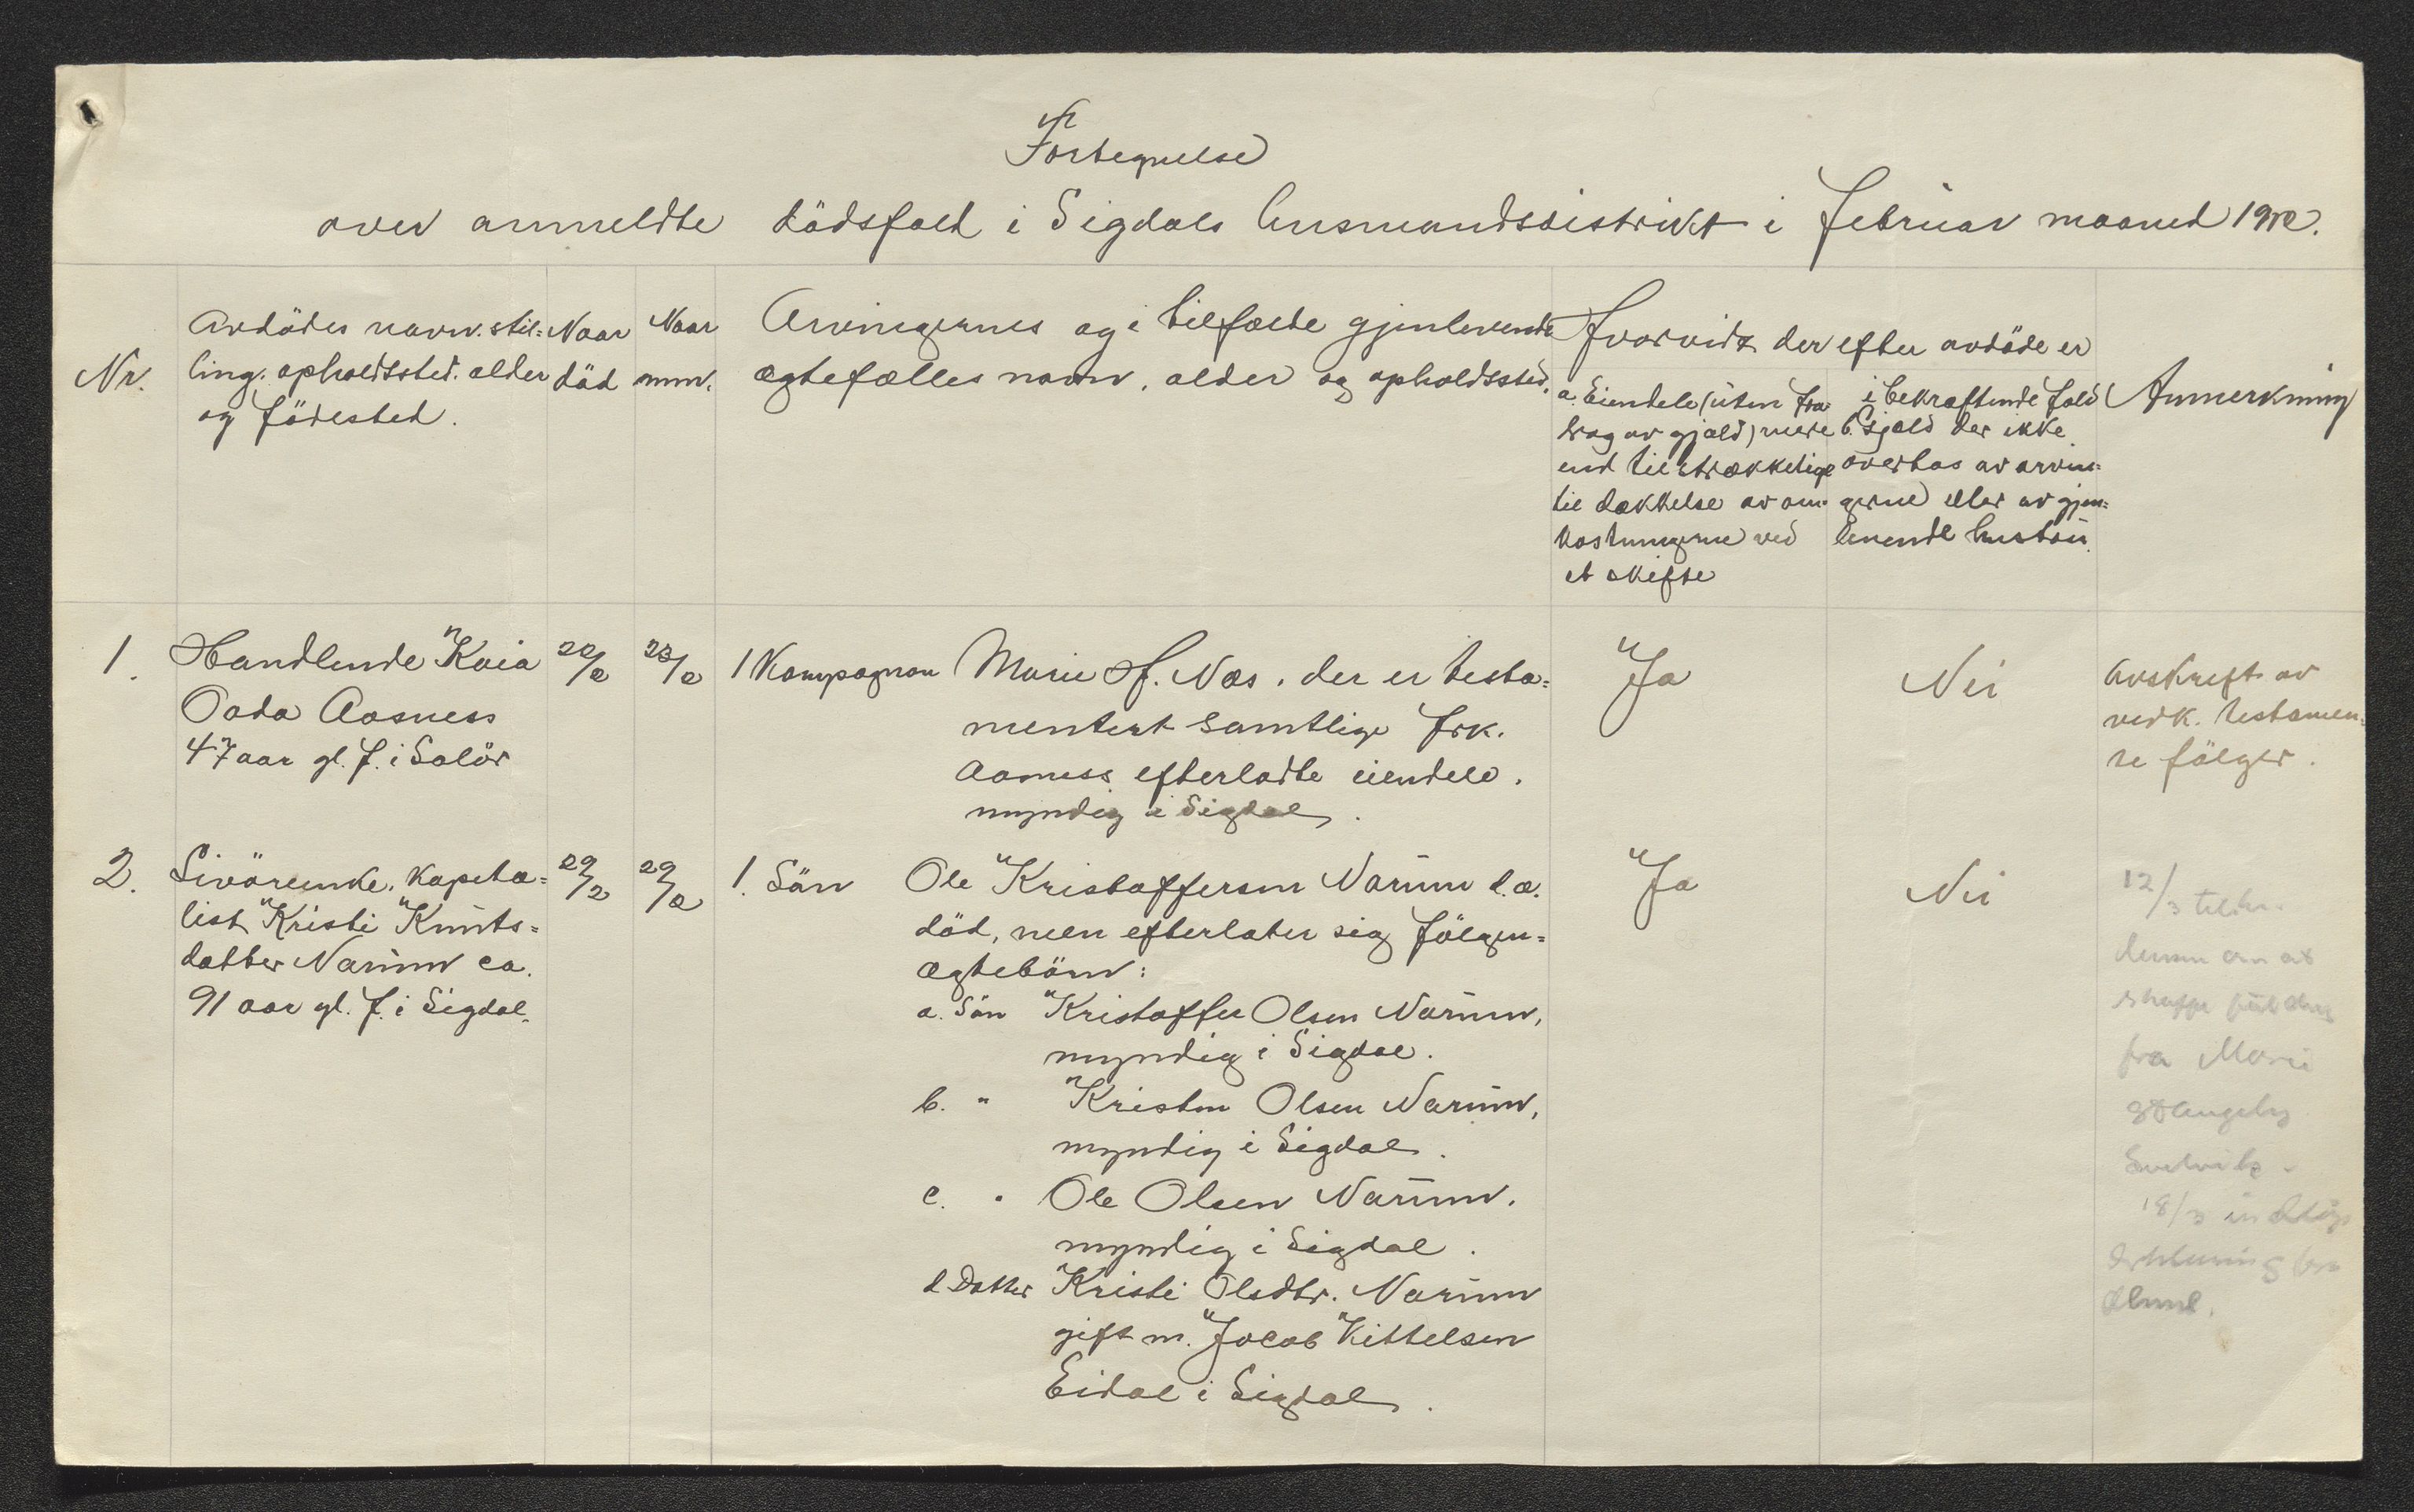 Fortegnelse
over anmeldte dödsfald i Sigdals lensmandsdistrikt i februar maaned 1912.
Nr.
Avdödes navn. stil=
ling. opholdssted. alder
og födested.
Naar
död
Naar
anm.
Arvingernes og i tilfælde gjenlevende
ægtefælles navn, alder og opholdssted.
Hvorvidt der efter avdöde er
a. Eiendele (uten fra
drag av gjæld) mere
end tilstrækkelige
til dækkelse av om-
kostningerne ved
et skifte
i bekræftende fald
b. Gjæld der ikke
overtas av arvin=
gerne eller av gjen=
levende hustru.
Anmerkning
1.
Handlende Kaia
Oada Aasness
47 aar gl. f. i Solör
22/2
23/2
1 Kompagnon Marie H. Næs. der er testa=
mentert samtlige frk.
Aasness efterladte eiendele.
myndig i Sigdal.
Ja
Nei
Avskrift av
vedk. testamen=
te fölger.
2.
Livörende, kapita=
list Kristi Knuts=
datter Narum ca.
91 aar gl. f. i Sigdal.
29/2
29/2
1. Sön Ole Kristoffersen Narum d.æ.
död, men efterlater sig fölgen=
ægtebörn:
a. Sön Kristoffer Olsen Narum,
myndig i Sigdal.
b. " Kristen Olsen Narum,
myndig i Sigdal.
c. " Ole Olsen Narum.
myndig i Sigdal.
d Datter Kristi Olsdtr. Narum
gift m. Jacob Kittelsen
Eidal i Sigdal.
Ja
Nei
12/3
om at
skaffe
fra Marie
18/3